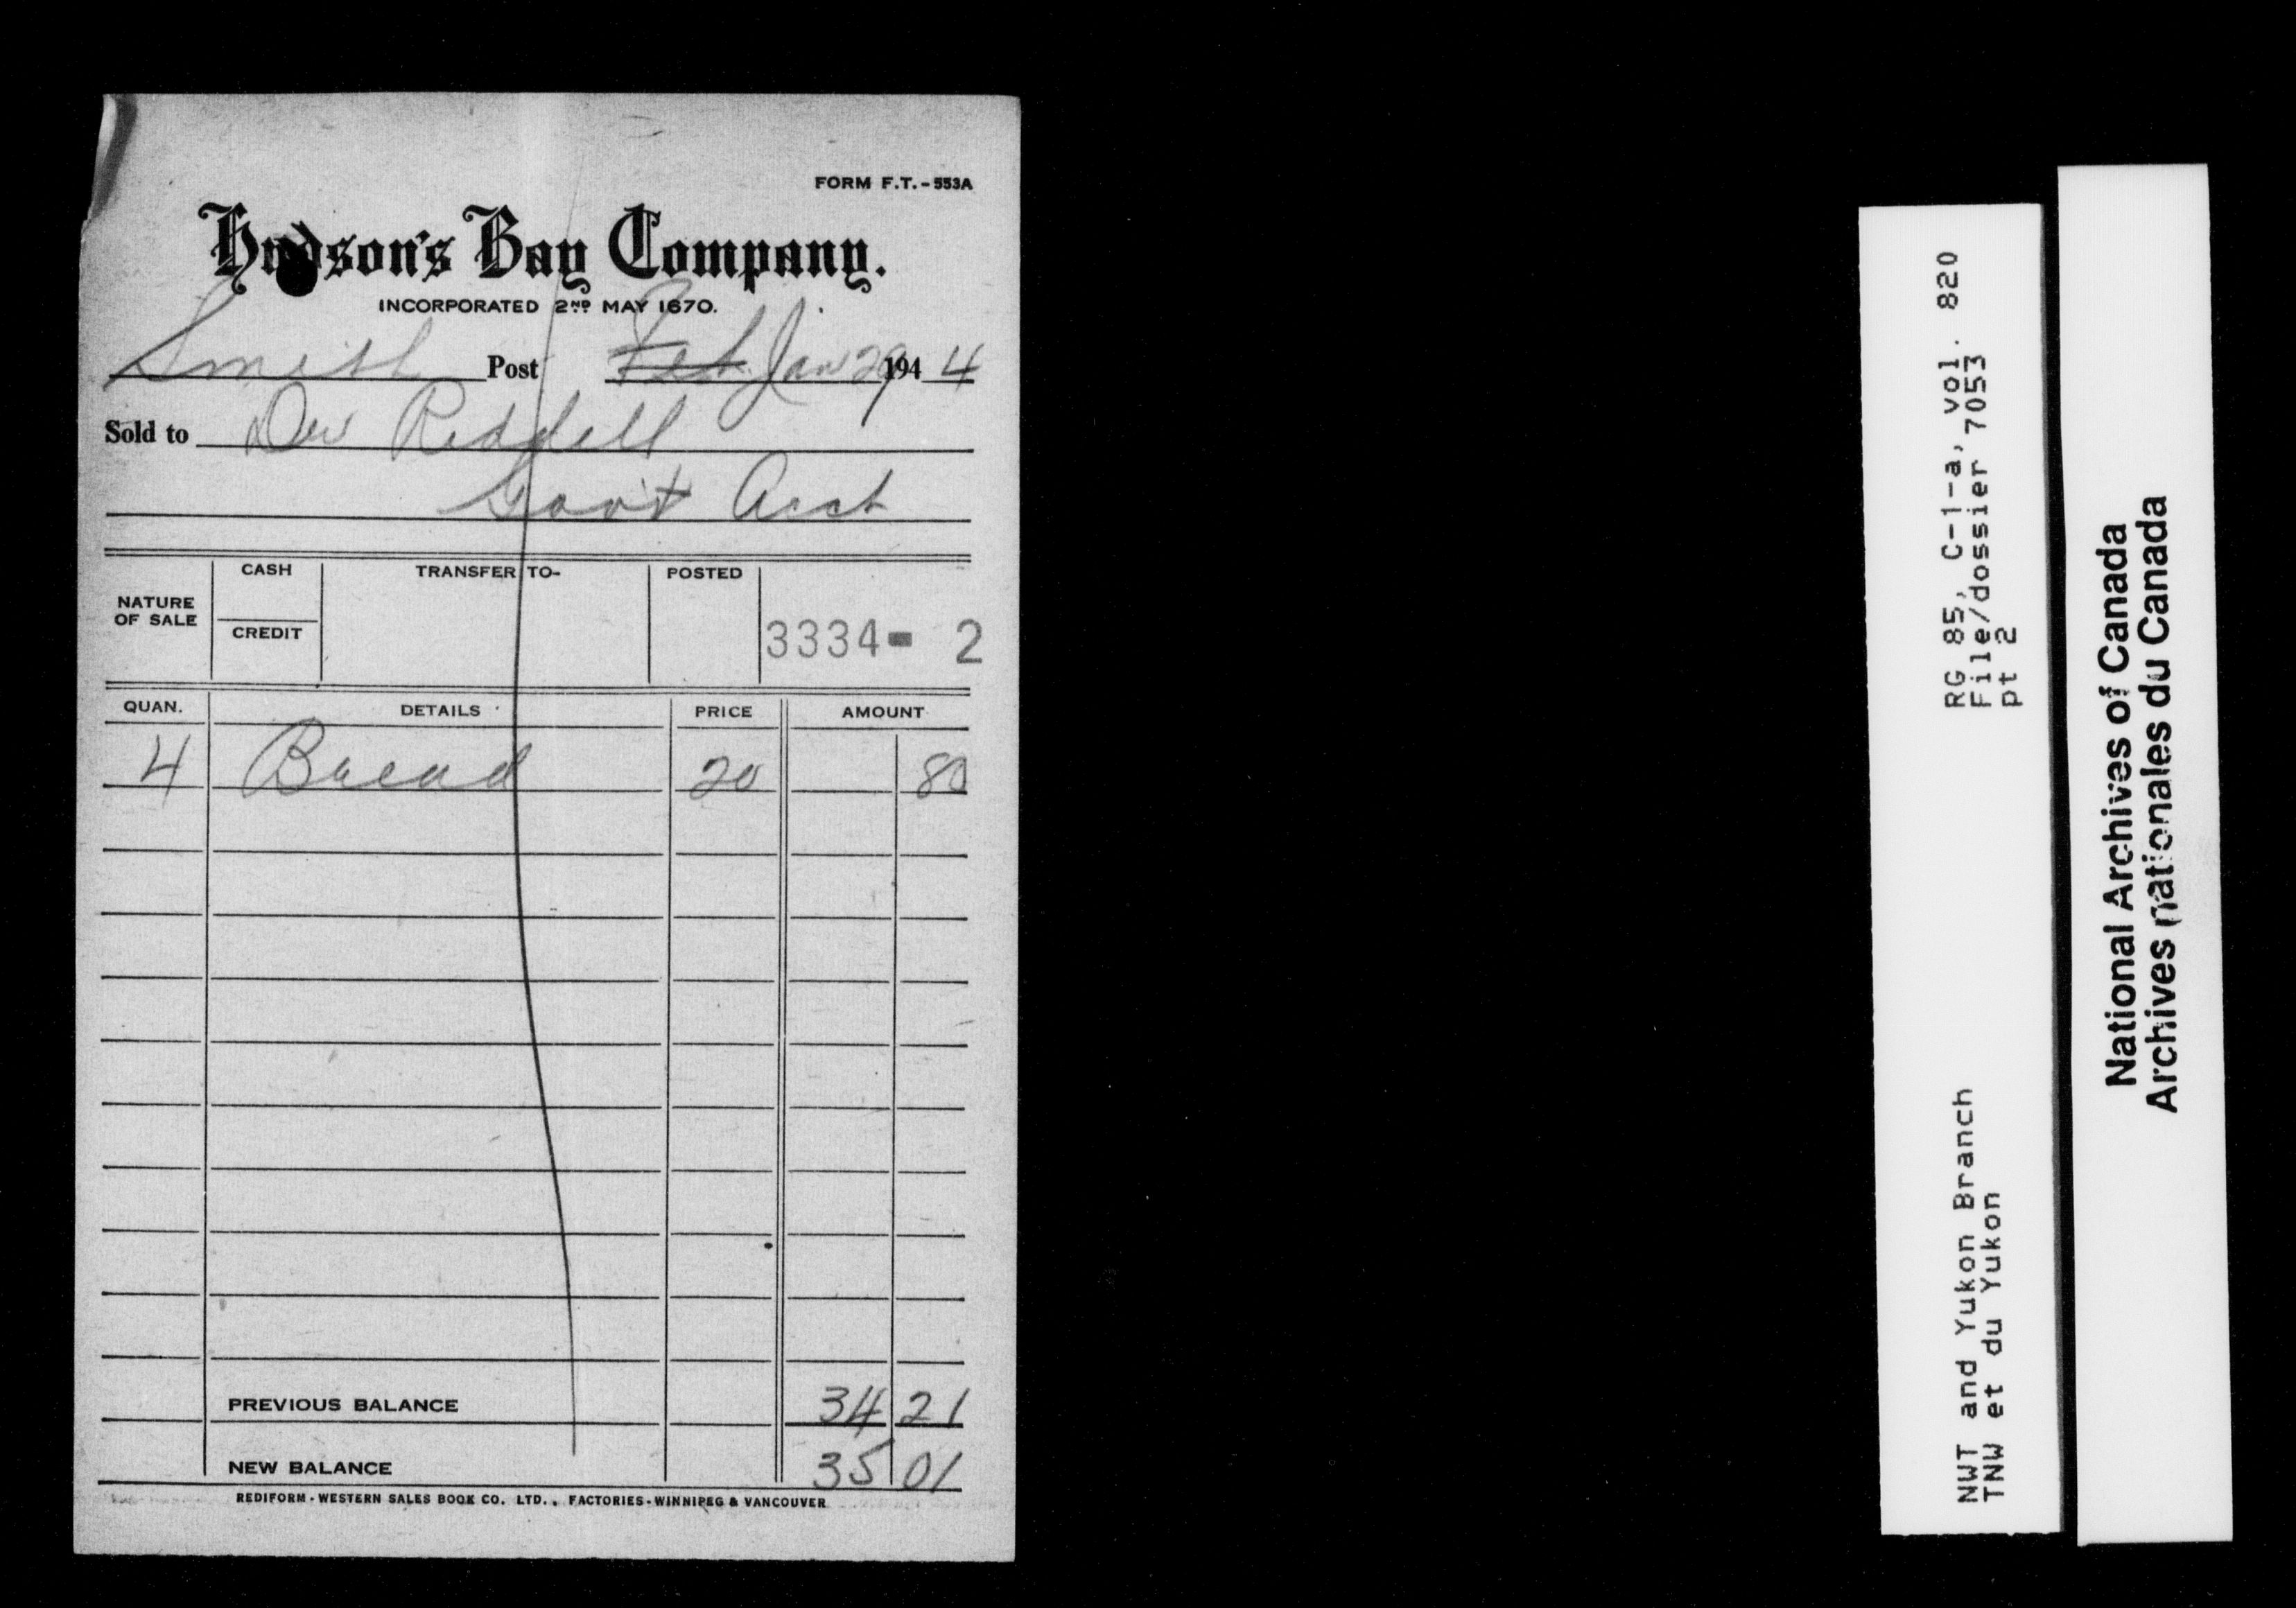 FORM F.T.-553A
Hudson's Bay Company.
INCORPORATED 2ND MAY 1670.
Smith Post Feb Jan 29 194 4
Sold to Dew Riddell
Govt Acct
NATURE OF SALE CASH CREDIT TRANSFER TO- POSTED 3334- 2
QUAN. DETAILS PRICE AMOUNT
4 Bread 20 80
PREVIOUS BALANCE 34 21
NEW BALANCE 35 01
REDIFORM - WESTERN SALES BOOK CO. LTD., FACTORIES - WINNIPEG & VANCOUVER
NWT and Yukon Branch RG 85, C-1-a, vol. 820
TNW et du Yukon File/dossier 7053
pt 2
National Archives of Canada
Archives nationales du Canada